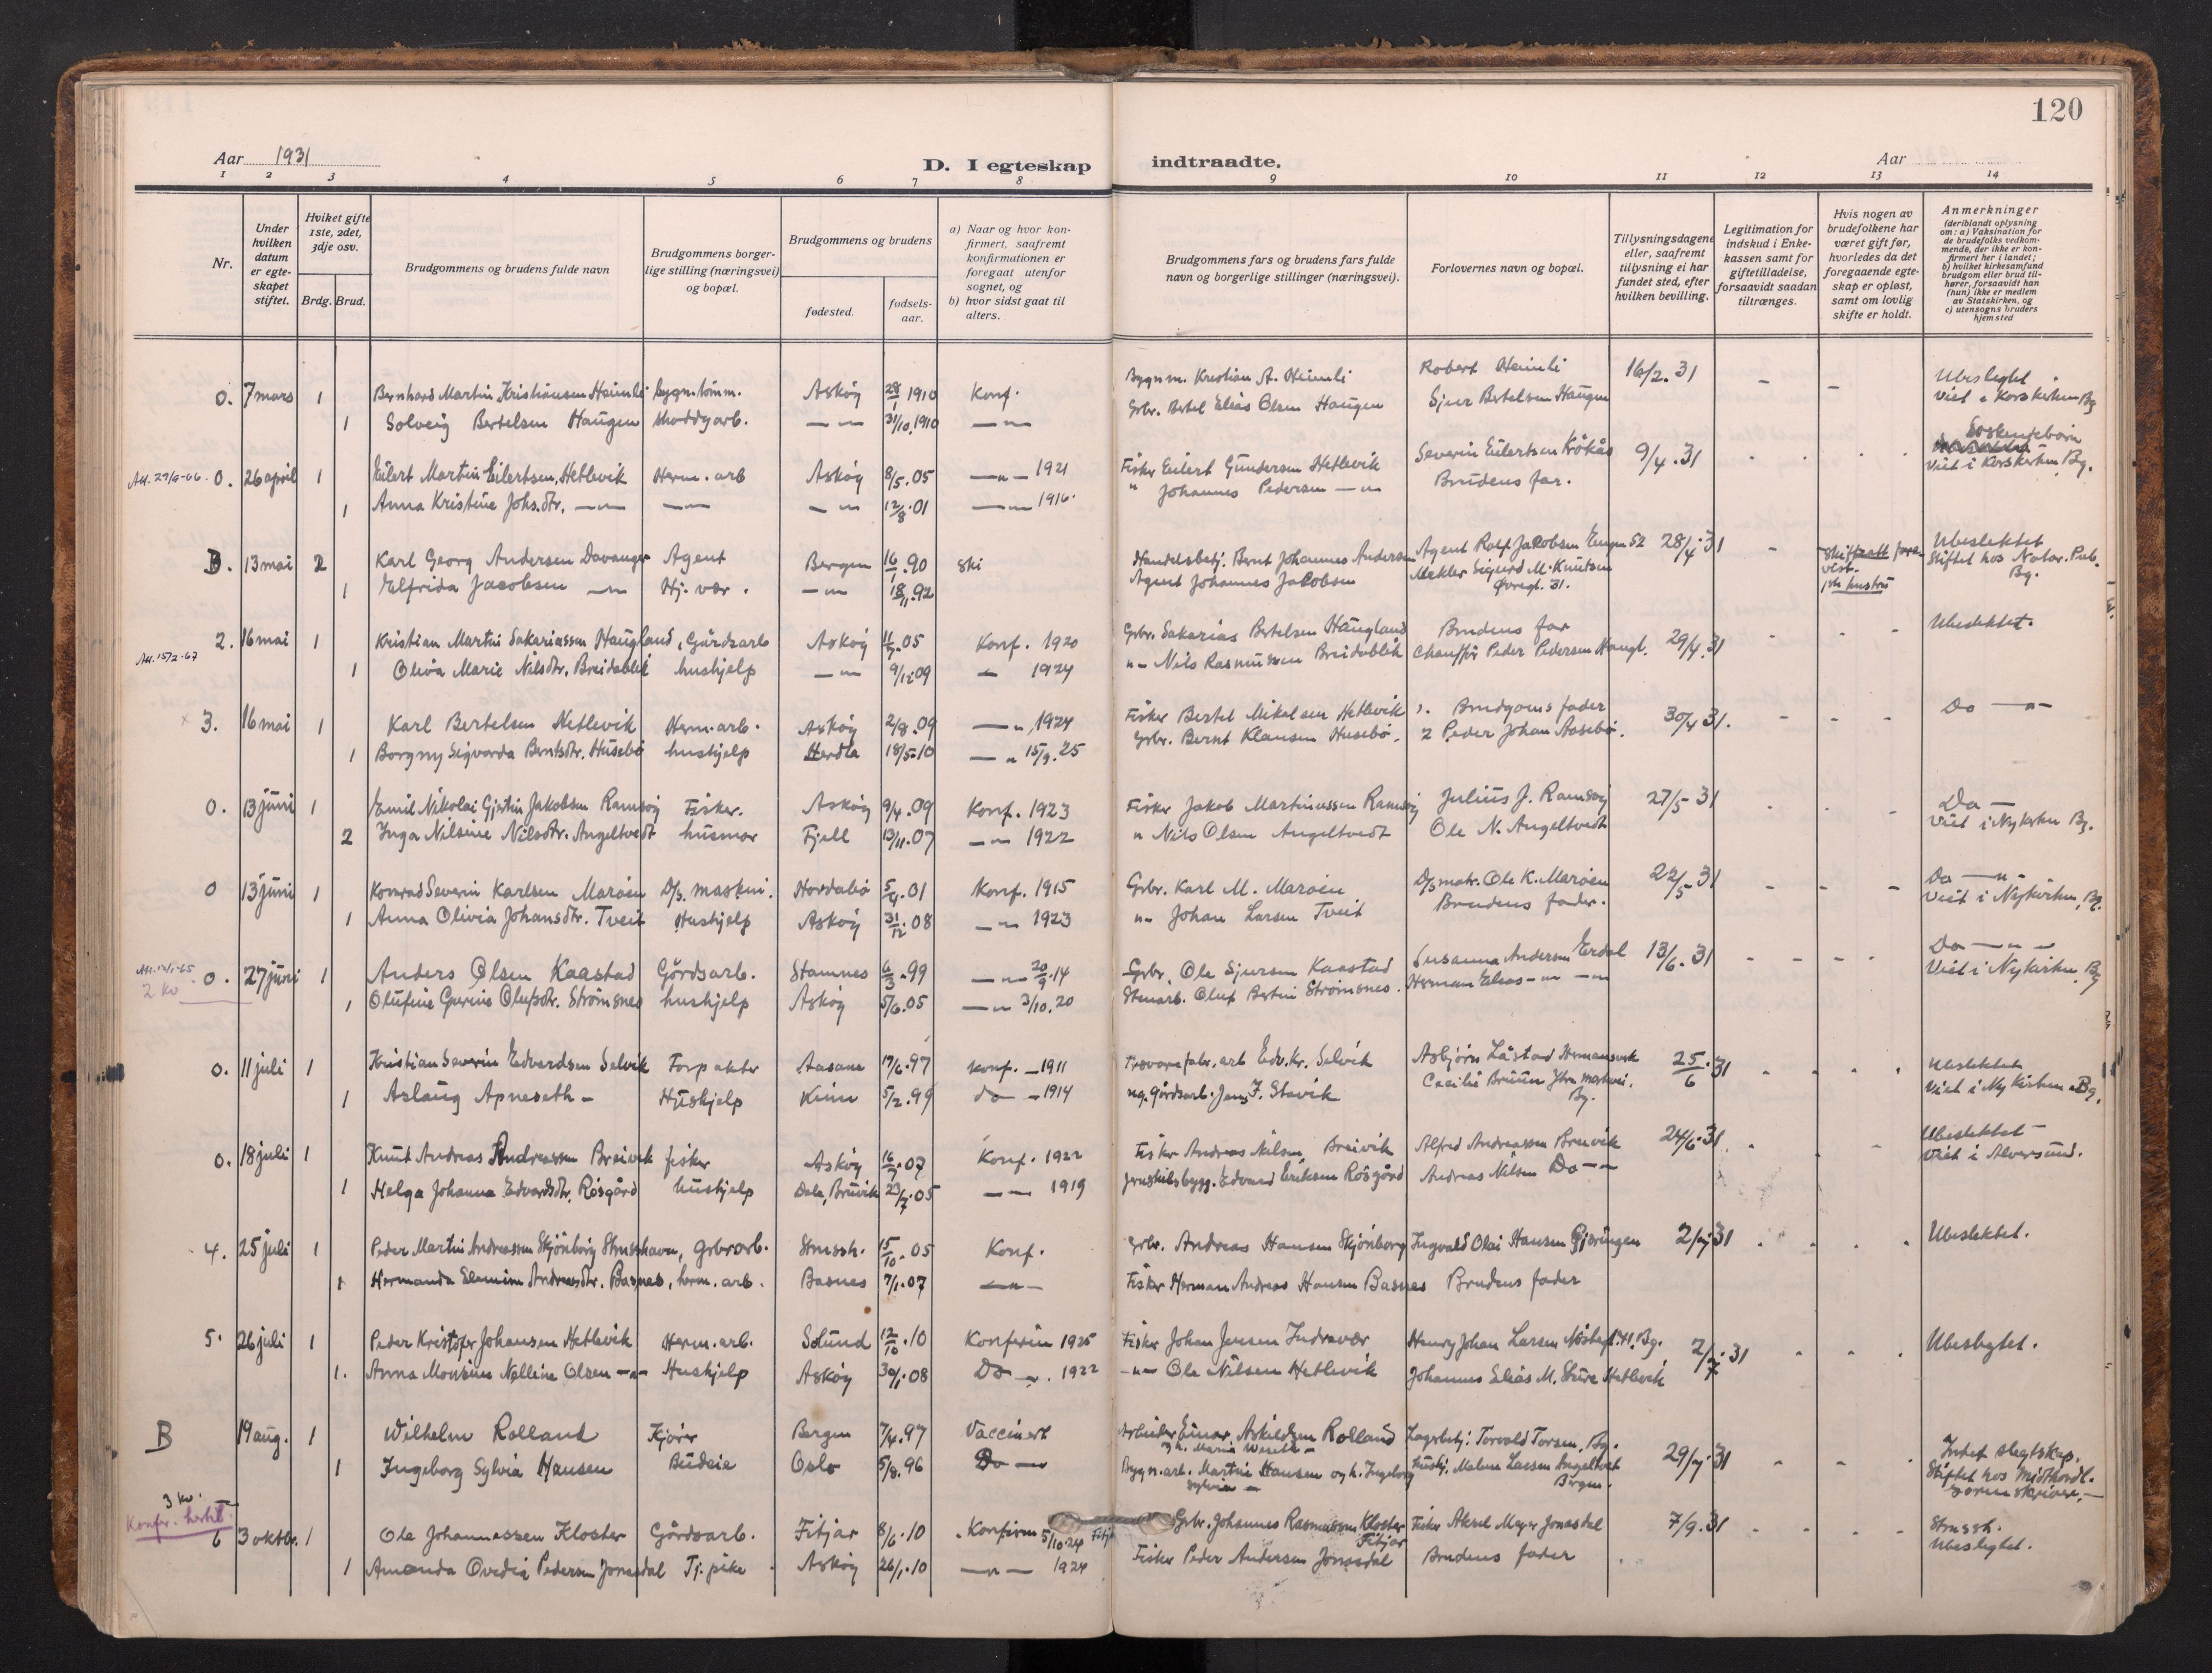 120
Aar 1931
D. I egteskap indtraadte.
Aar
1 2 3 4 5 6 7 8 9 10 11 12 13 14
Nr.
Under hvilken datum er egteskapet stiftet.
Hviket gifte 1ste, 2det, 3dje osv.
Brdg. Brud.
Brudgommens og brudens fulde navn
Brudgommens borgerlige stilling (næringsvei) og bopæl.
Brudgommens og brudens
fødested.
fødselsaar.
a) Naar og hvor konfirmert, saafremt konfirmationen er foregaat utenfor sognet, og
b) hvor sidst gaat til alters.
Brudgommens fars og brudens fars fulde navn og borgerlige stillinger (næringsvei).
Forlovernes navn og bopæl.
Tillysningsdagene eller, saafremt tillysning ei har fundet sted, efter hvilken bevilling.
Legitimation for indskud i Enkekassen samt for giftetilladelse, forsaavidt saadan tiltrænges.
Hvis nogen av brudefolkene har været gift før, hvorledes da det foregaaende egteskap er opløst, samt om lovlig skifte er holdt.
Anmerkninger
(deriblandt oplysning om: a) Vaksination for de brudefolks vedkommende, der ikke er konfirmert her i landet;
b) hvilket kirkesamfund brudgom eller brud tilhører, forsaavidt han (hun) ikke er medlem av Statskirken, og
c) utensogns bruders hjemsted
0. 7 mars 1 Bernhard Martin Kristiansen Heimli bygn.tømm. Askøy 28/1 1910 Konf. Bygnm. Kristian A. Heimli Robert Heimli 16/2.31 - - Ubeslegtet
Viet i Korskirken Bg
1 Solveig Bertelsen Haugen shoddyarb. —"— 31/10.1910 —"— Grbr. Bertel Elias Olsen Haugen Sjur Bertelsen Haugen
Att. 29/6-66 0. 26 april 1 Eilert Martin Eilertsen, Hetlevik Herm. arb Askøy 8/5.05 —"— 1921 Fisker Eilert Gundersen Hetlevik Severin Eilertsen Kråkås 9/4.31 Søskendebørn
Viet i Korskirken, Bg.
1 Anna Kristine Johs.dtr. —"— —"— —"— 12/8.01 —"— 1916. " Johannes Pedersen —"— Brudens far.
B. 13 mai 2 Karl Georg Andersen Davanger Agent Bergen 16/1.90 Ski Handelsbetj. Bernt Johannes Andersen Agent Rolf Jakobsen Engen 52 28/4.31 - Ubeslektet
Stiftet hos Notar. Pub. Bg.
1 Elfrida Jacobsen —"— Hj. vær. —"— 18/11.92 Agent Johannes Jacobsen Mekler Sigurd M. Knutsen
Øvregt. 31. 1ste hustru
Att. 15/2-67 2. 16 mai 1 Kristian Martin Sakariassen Haugland, Gårdsarb Askøy 11/7.05 Konf. 1920 Grbr. Sakarias Bertelsen Haugland Brudens far 29/4.31 Ubeslektet.
1 Oliva Marie Nilsdtr. Breidablik hushjelp —"— 9/12.09 — 1924 "- Nils Rasmussen Breidablik Chauffør Peder Pedersen Haugl.
3. 16 mai 1 Karl Bertelsen Hetlevik Herm.arb. Askøy 2/8.09 —"— 1924 Fisker Bertel Mikalsen Hetlevik 1. Brudgoms fader 30/4 31. Do —"—
1 Borgny Sigvarda Berntsdtr. Husebø hushjelp Herdla 18/5.10 —" 15/9.25 Grbr. Bernt Klausen Husebø. 2 Peder Johan Aasebø.
0. 13 juni 1 Emil Nikolai Gjertin Jakobsen Ramsøy Fisker. Askøy 9/4.09 Konf. 1923 Fisker Jakob Martinussen Ramsøy Julius J. Ramsøy 27/5 31 Do —
Viet i Nykirken Bg.
2 Inga Nilsine Nilsdtr. Angeltvedt husmor Fjell 13/11.07 —"— 1922 " Nils Olsen Angeltvedt Ole N. Angeltvedt
0 13 juni 1 Konrad Severin Karlsen Marøen D/s. maskini. Hordabø 5/4.01 Konf. 1915 Grbr. Karl M. Marøen D/s matr. Ole K. Marøen 22/5 31 Do —"—
Viet i Nykirken, Bg.
1 Anna Olivia Johansdtr. Tveit Hushjelp Askøy 31/12.08 —"— 1923 "- Johan Larsen Tveit Brudens fader.
2 kv 0. 27 juni 1 Anders Olsen Kaastad Gårdsarb. Stamnes 6/3.99 —"— 20/9.14 Grbr. Ole Sjursen Kaastad Susanna Andersen Erdal 13/6.31 Do —"—
Viet i Nykirken, Bg
1 Olufine Gurine Olufsdtr. Strømsnes hushjelp Askøy 5/6.05 —"— 3/10.20 Stenarb. Oluf Bertin Strømsnes. Herman Elias —"— —"—
0. 11 juli 1 Kristian Severin Edvardsen Selvik Forpakter Aasane 17/6.97 Konf. — 1911 Edv. Kr. Selvik Asbjørn Låstad Hermansverk 25/6.31 Ubeslektet
Viet i Nykirken Bg.
1 Aslaug Apneseth - Hushjelp Kinn 5/2.99 do — 1914 ug. gårdsarb. Jens J. Stavik Cecilie Bruun Ytre Markvei. Bg.
0. 18 juli 1 Knut Andreas Andreassen Breivik fisker Askøy 16/7.07 Konf. 1922 Fisker Andreas Nilsen, Breivik Alfred Andreassen Breivik 24/6.31. Ubeslektet
Viet i Alversund.
1 Helga Johanna Edvardsdtr. Røsgård hushjelp Dale, Bruvik 23/7.05 —"— 1919 Jernskibsbygg. Edvard Eriksen Røsgård Andreas Nilsen Do —"—
4. 25 juli 1 Peder Martin Andreassen Skjønborg Strusshavn, grbrarb. Strussh. 15/10.05 Konf. Grbr. Andreas Hansen Skjønborg Ingvald Olai Hansen Gjeringen 2/7 31 Ubeslektet.
1 Hermanda Elemine Andreasdtr. Basnes, herm. arb. Basnes 7/1.07 —"— Fisker Herman Andreas Hansen Basnes Brudens fader
5. 26 juli 1 Peder Kristofer Johansen Hetlevik Herm. arb. Solund 12/10.10 Konferin 1925 Fisker Johan Jensen Indrevær Henry Johan Larsen Nøstegt. 41. Bg. 2/7.31 Ubeslegtet.
1. Anna Monsine Nelline Olsen —"— Hushjelp Askøy 30/1.08 Do —". 1922 —"— Ole Nilsen Hetlevik Johannes Elias M. Sture Hetlevik
B 19 aug. 1 Wilhelm Rolland Kjører Bergen 7/4.97 Vaccinert Arbeider Einar Askildsen Rolland Lagerbetj. Torvald Torsen, Bg. 29/7 31 Intet slegtskap.
Stiftet hos Midthordl. sorenskriver. —
1 Ingeborg Sylvia Hansen Budeie Oslo 5/8.96 Do — Bygn.arb. Martin Hansen og h. Ingeborg Hushj. Malene Larsen Angeltveit Bergen.
3 kv.
Konfr. hertil.
6 3 oktbr. 1 Ole Johannessen Kloster Gårdsarb. Fitjar 8/6.10 Konfirm 5/10.24 Fitjar Grbr. Johannes Rasmussen Kloster Fitjar Fisker Aksel Meyer Jonasdal 7/9.31 Strussh.
Ubeslegtet.
1 Amanda Ovedia Pedersen Jonasdal Tj. pike Askøy 26/1.10 —"— 1924 Fisker Peder Andersen Jonasdal Brudens fader